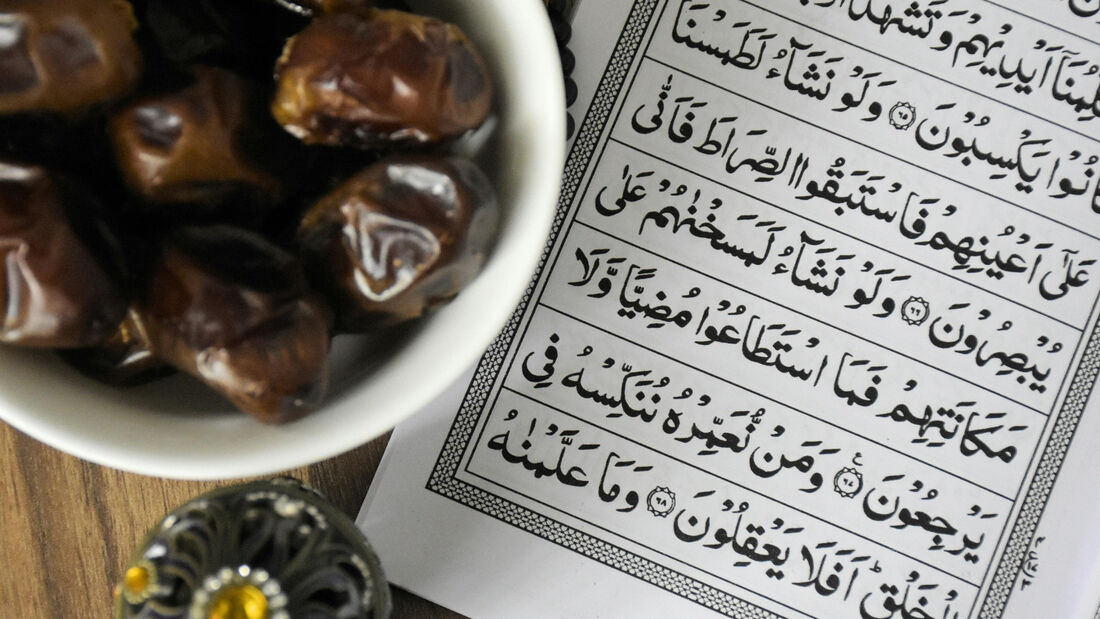 اَيْدِيْهِمْ وَتَشْهَدُ
كَانُوْا يَكْسِبُوْنَ ۝٦٥ وَلَوْ نَشَآءُ لَطَمَسْنَا
عَلٰٓى اَعْيُنِهِمْ فَاسْتَبَقُوا الصِّرَاطَ فَاَنّٰى
يُبْصِرُوْنَ ۝٦٦ وَلَوْ نَشَآءُ لَمَسَخْنٰهُمْ عَلٰى
مَكَانَتِهِمْ فَمَا اسْتَطَاعُوْا مُضِيًّا وَّلَا
يَرْجِعُوْنَ ۝٦٧ۧ وَمَنْ نُّعَمِّرْهُ نُنَكِّسْهُ فِى
الْخَلْقِ ؕ اَفَلَا يَعْقِلُوْنَ ۝٦٨ وَمَا عَلَّمْنٰهُ